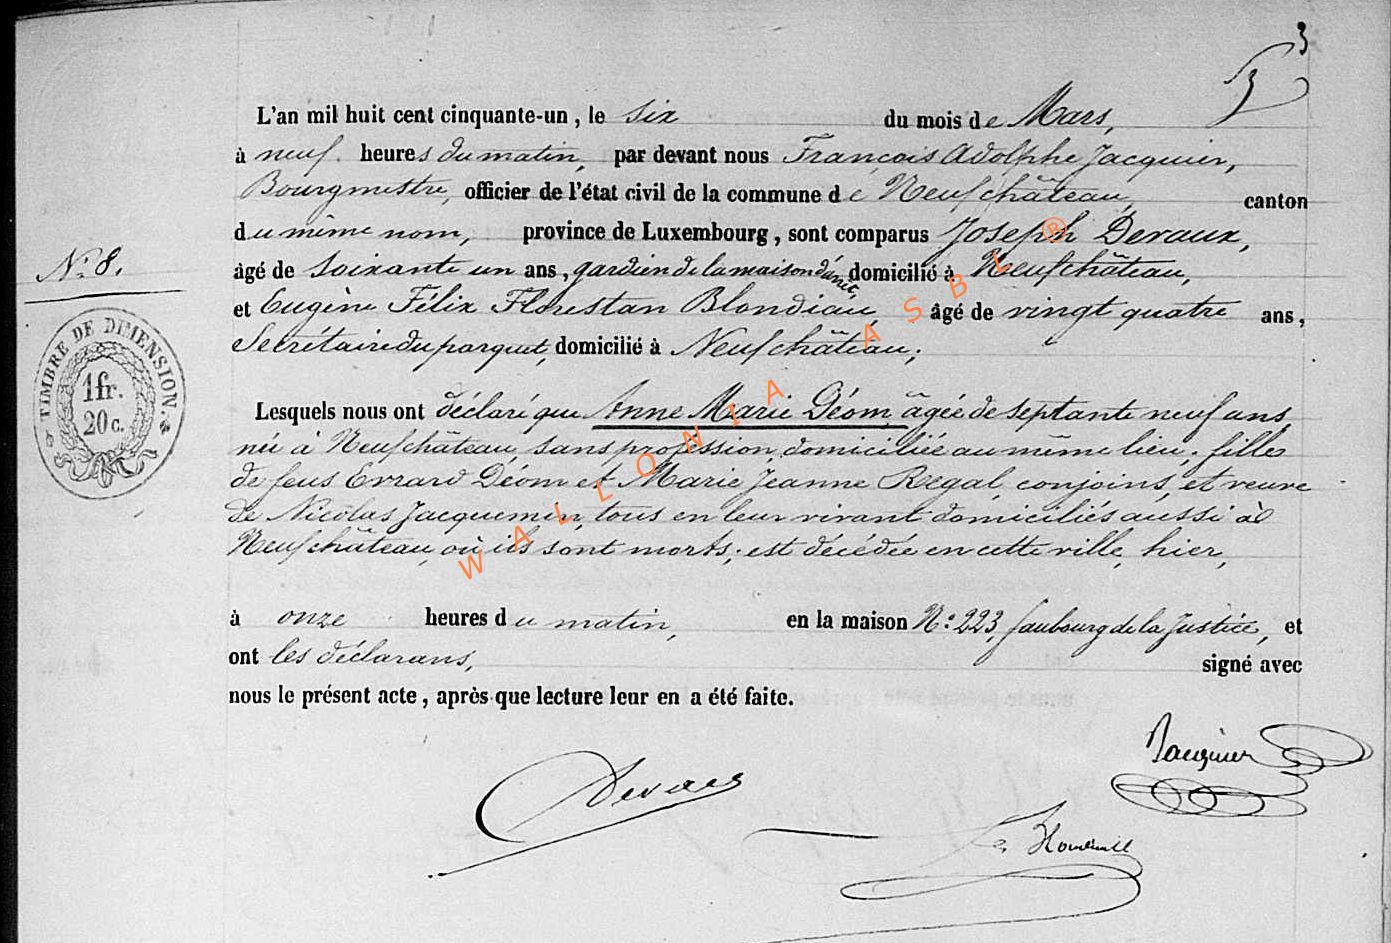 3
L'an mil huit cent cinquante-un, le six du mois de Mars,
à neuf heures du matin, par devant nous François Adolphe Jacquier,
Bourgmestre, officier de l'état civil de la commune de Neufchâteau, canton
du même nom, province de Luxembourg, sont comparus Joseph Devaux,
N° 8.
âgé de soixante un ans, gardien de la maison d'arrêt, domicilié à Neufchâteau,
et Eugène Félix Florestan Blondiau, âgé de vingt quatre ans,
Secrétaire du parquet, domicilié à Neufchâteau;
TIMBRE DE DIMENSION.
1fr.
20c.
Lesquels nous ont déclaré que Anne Marie Déom, âgée de septante neuf ans,
née à Neufchâteau, sans profession, domiciliée au même lieu, fille
de feus Errard Déom et Marie Jeanne Regal, conjoins, et veuve
de Nicolas Jacquemin, tous en leur vivant domiciliés aussi à
Neufchâteau, où ils sont morts; est décédée en cette ville, hier,
à onze heures du matin, en la maison N° 223, faubourg de la Justice, et
ont les déclarans, signé avec
nous le présent acte, après que lecture leur en a été faite.
Jacquier
Devaux
WALLONIA ASBL ®